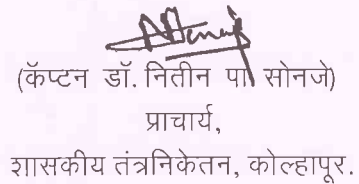 (कॅप्टन डॉ. नितीन पा सोनजे)
प्राचार्य,
शासकीय तंत्रनिकेतन, कोल्हापूर.